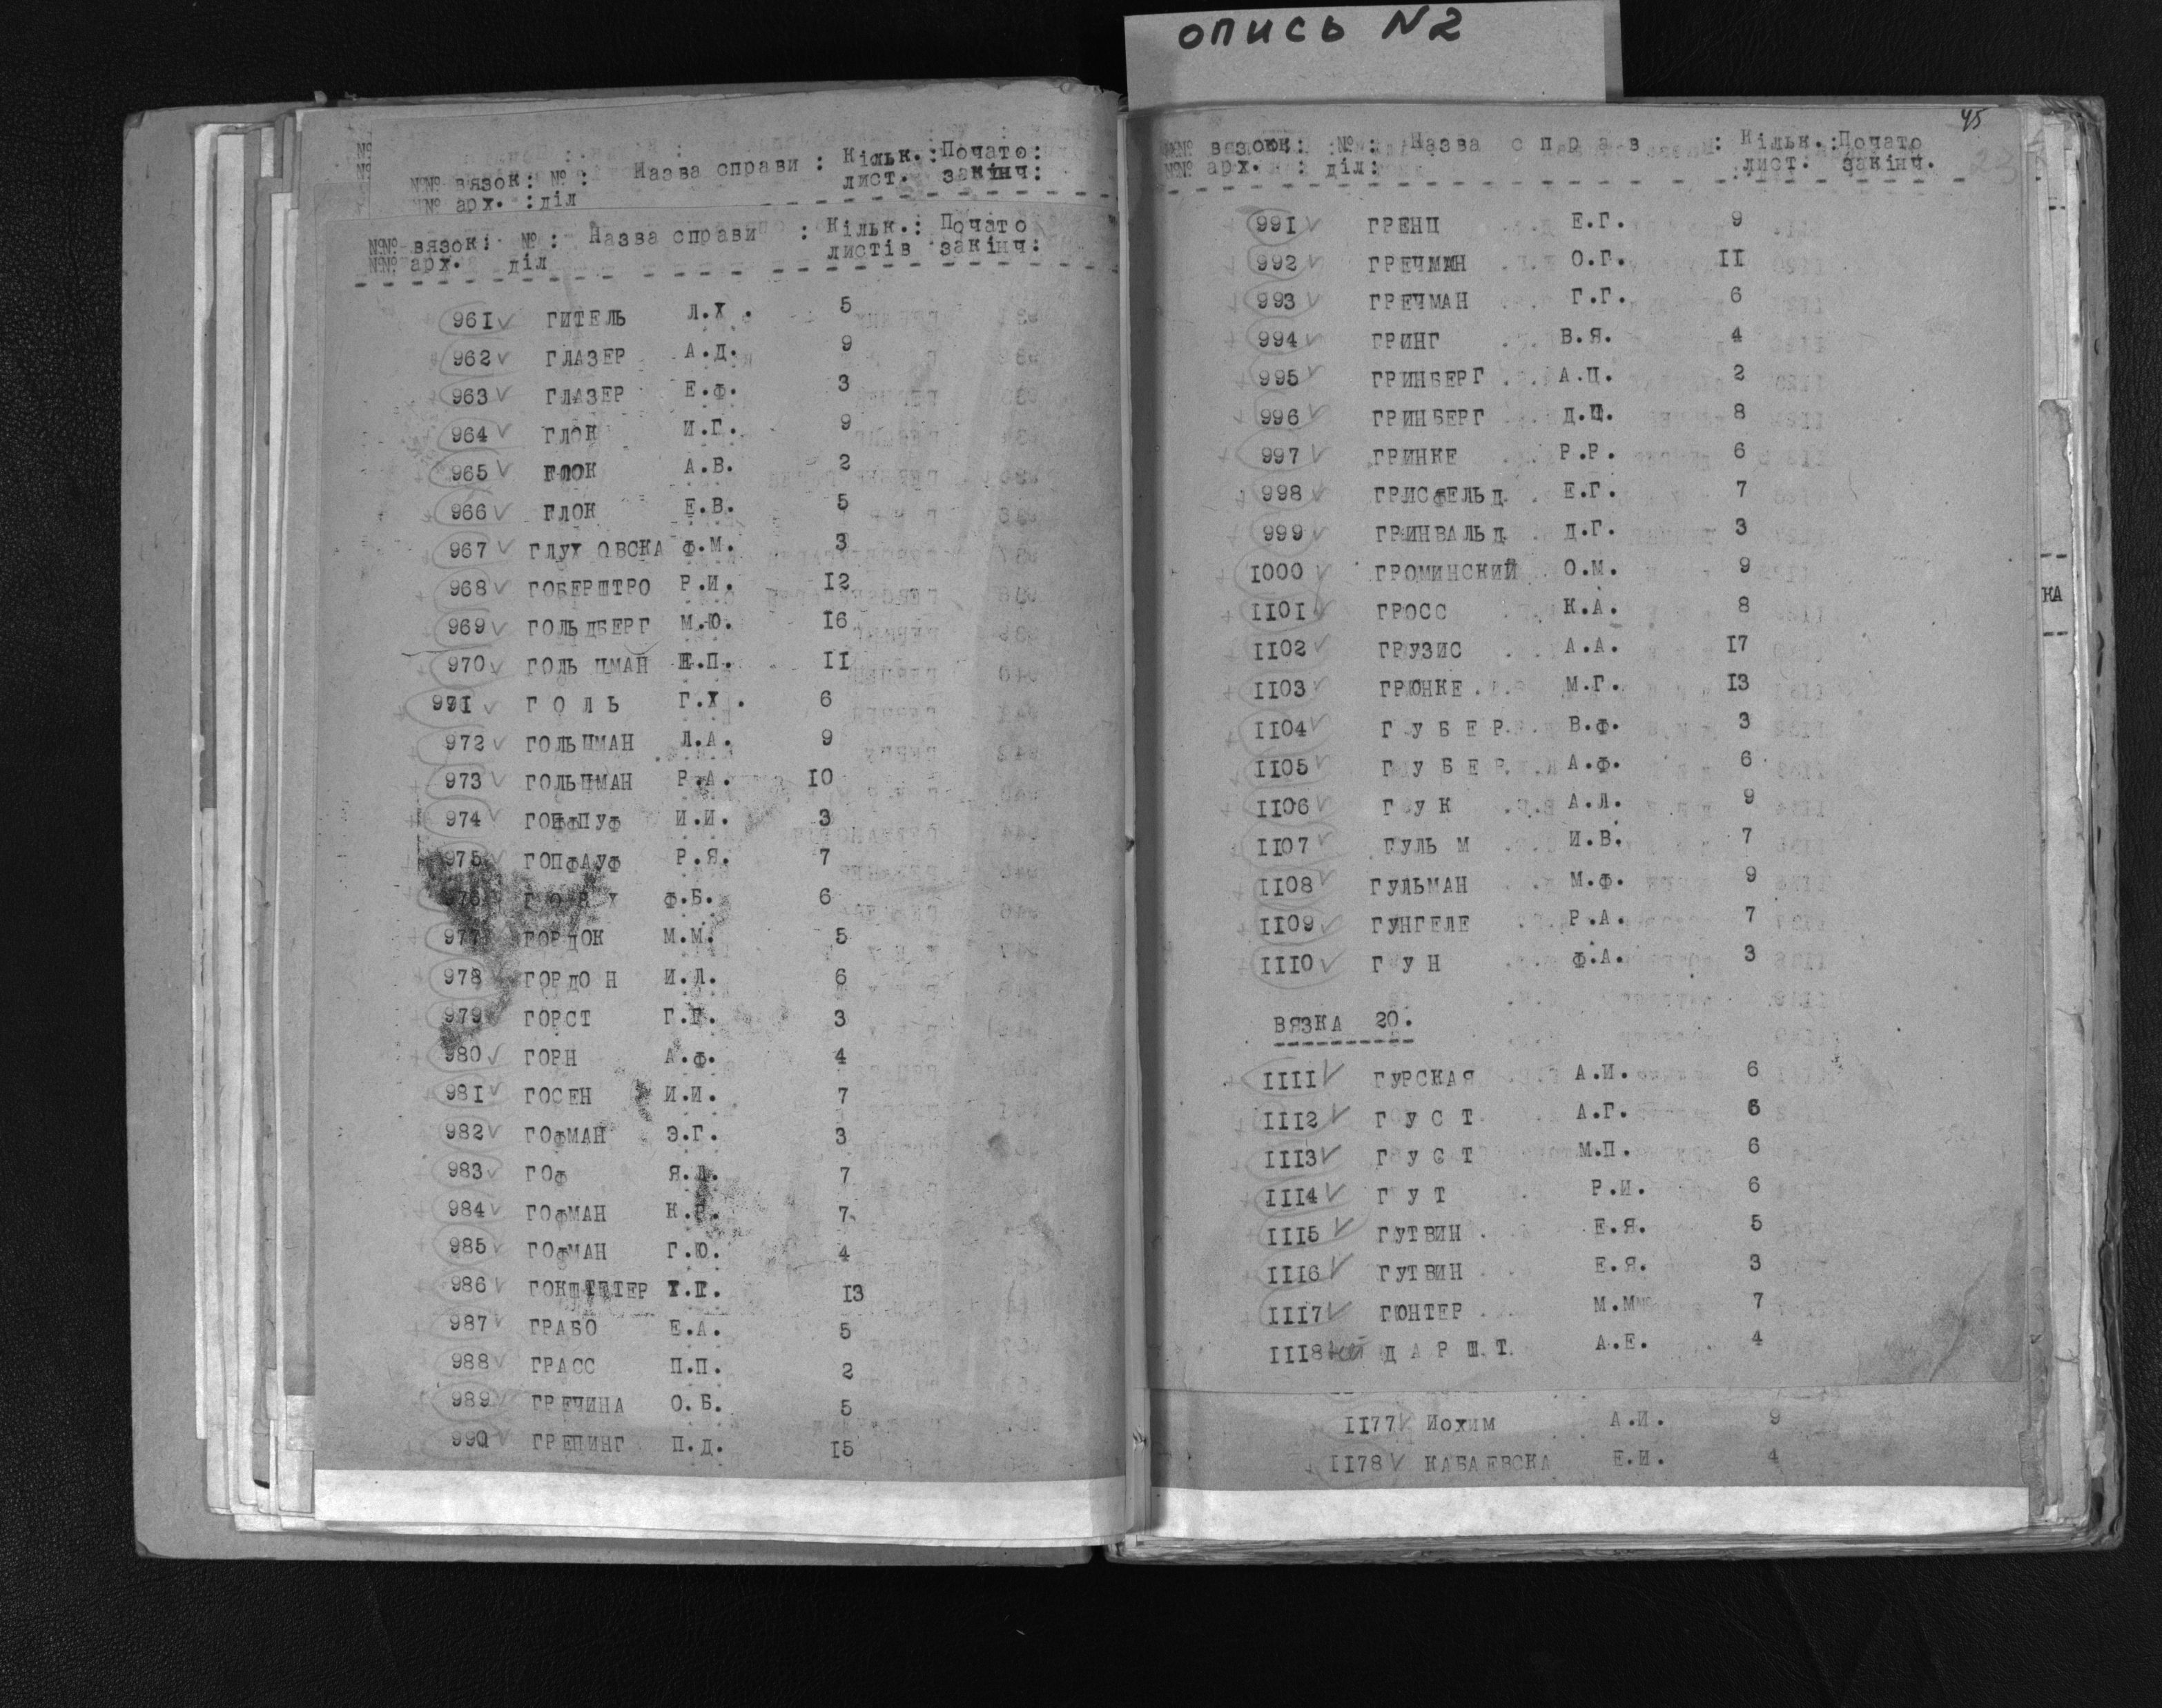 опись N2
№№ вязок: № : Назва справи : Кільк.: Почато:
№№ арх. : діл лист. закінч:
№№ вязок: № : Назва справи : Кільк.: Почато
№№ арх. діл листів закінч:
961 ГИТЕЛЬ Л.Х. 5
962 ГЛАЗЕР А.Д. 9
963 ГЛАЗЕР Е.Ф. 3
964 ГЛОК И.Г. 9
965 ГЛОК А.В. 2
966 ГЛОК Е.В. 5
967 ГЛУХОВСКА Ф.М. 3
968 ГОБЕРШТРО Р.И. 12
969 ГОЛЬДБЕРГ М.Ю. 16
970 ГОЛЬЦМАН Е.П. 11
971 ГОЛЬ Г.Х. 6
972 ГОЛЬЦМАН Л.А. 9
973 ГОЛЬЦМАН Р.А. 10
974 И.И. 3
975 ГОПФАУФ Р.Я. 7
976 Ф.Б. 6
977 ГОРДОК М.М. 5
978 ГОРДОН И.Л. 6
979 ГОРСТ Г.Г. 3
980 ГОРН А.Ф. 4
981 ГОСЕН И.И. 7
982 ГОФМАН Э.Г. 3
983 ГОФ Я.Л. 7
984 ГОФМАН К.Р. 7
985 ГОФМАН Г.Ю. 4
986 ГОКШТЕТЕР Х.Г. 13
987 ГРАБО Е.А. 5
988 ГРАСС П.П. 2
989 ГРЕЧИНА О.Б. 5
990 ГРЕПИНГ П.Д. 15
45
№№ вазоюк: № : Назва справ : Кільк.: Почато
№№ арх. : діл: лист. закінч.
991 ГРЕНЦ Е.Г. 9
992 ГРЕЧМАН О.Г. 11
993 ГРЕЧМАН Г.Г. 6
994 ГРИНГ В.Я. 4
995 ГРИНБЕРГ А.Ц. 2
996 ГРИНБЕРГ Д.Ц. 8
997 ГРИНКЕ Р.Р. 6
998 ГРИСФЕЛЬД Е.Г. 7
999 ГРИНВАЛЬД Д.Г. 3
1000 ГРОМИНСКИЙ О.М. 9
1101 ГРОСС К.А. 8
1102 ГРУЗИС А.А. 17
1103 ГРЮНКЕ М.Г. 13
1104 ГУБЕР В.Ф. 3
1105 ГУБЕР А.Ф. 6
1106 ГУК А.Л. 9
1107 ГУЛЬМ И.В. 7
1108 ГУЛЬМАН М.Ф. 9
1109 ГУНГЕЛЕ Р.А. 7
1110 ГУН Ф.А. 3
ВЯЗКА 20.
1111 ГУРСКАЯ А.И. 6
1112 ГУСТ А.Г. 6
1113 ГУСТ М.П. 6
1114 ГУТ Р.И. 6
1115 ГУТВИН Е.Я. 5
1116 ГУТВИН Е.Я. 3
1117 ГЮНТЕР М.М 7
1118 нет ДАРШТ А.Е. 4
1177 Иохим А.И. 9
1178 КАБАЕВСКА Е.И. 4
КА